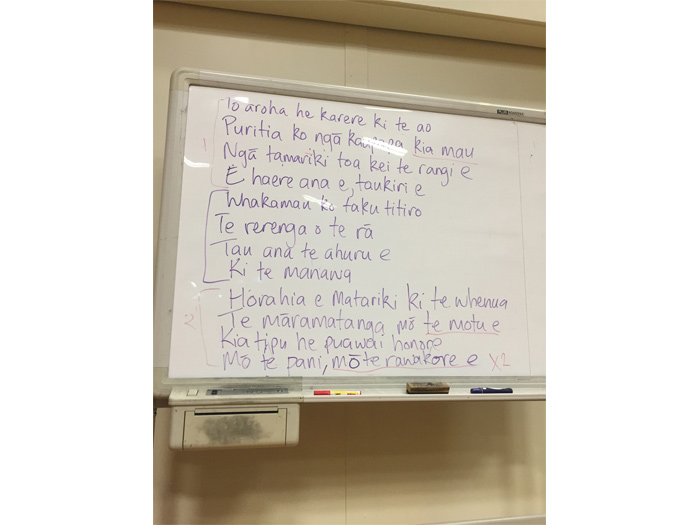 Tō aroha he karere ki te ao
1 Puritia ko ngā kaupapa kia mau
Ngā tamariki toa kei te rangi e
E haere ana e, taukiri e
Whakamau ko taku titiro
Te rerenga o te rā
Tau ana te ahuru e
Ki te manawa
Horahia e Matariki ki te whenua
2 Te māramatanga mō te motu e
Kia tipu he puawai honore
Mō te pani, mō te rawakore e x2